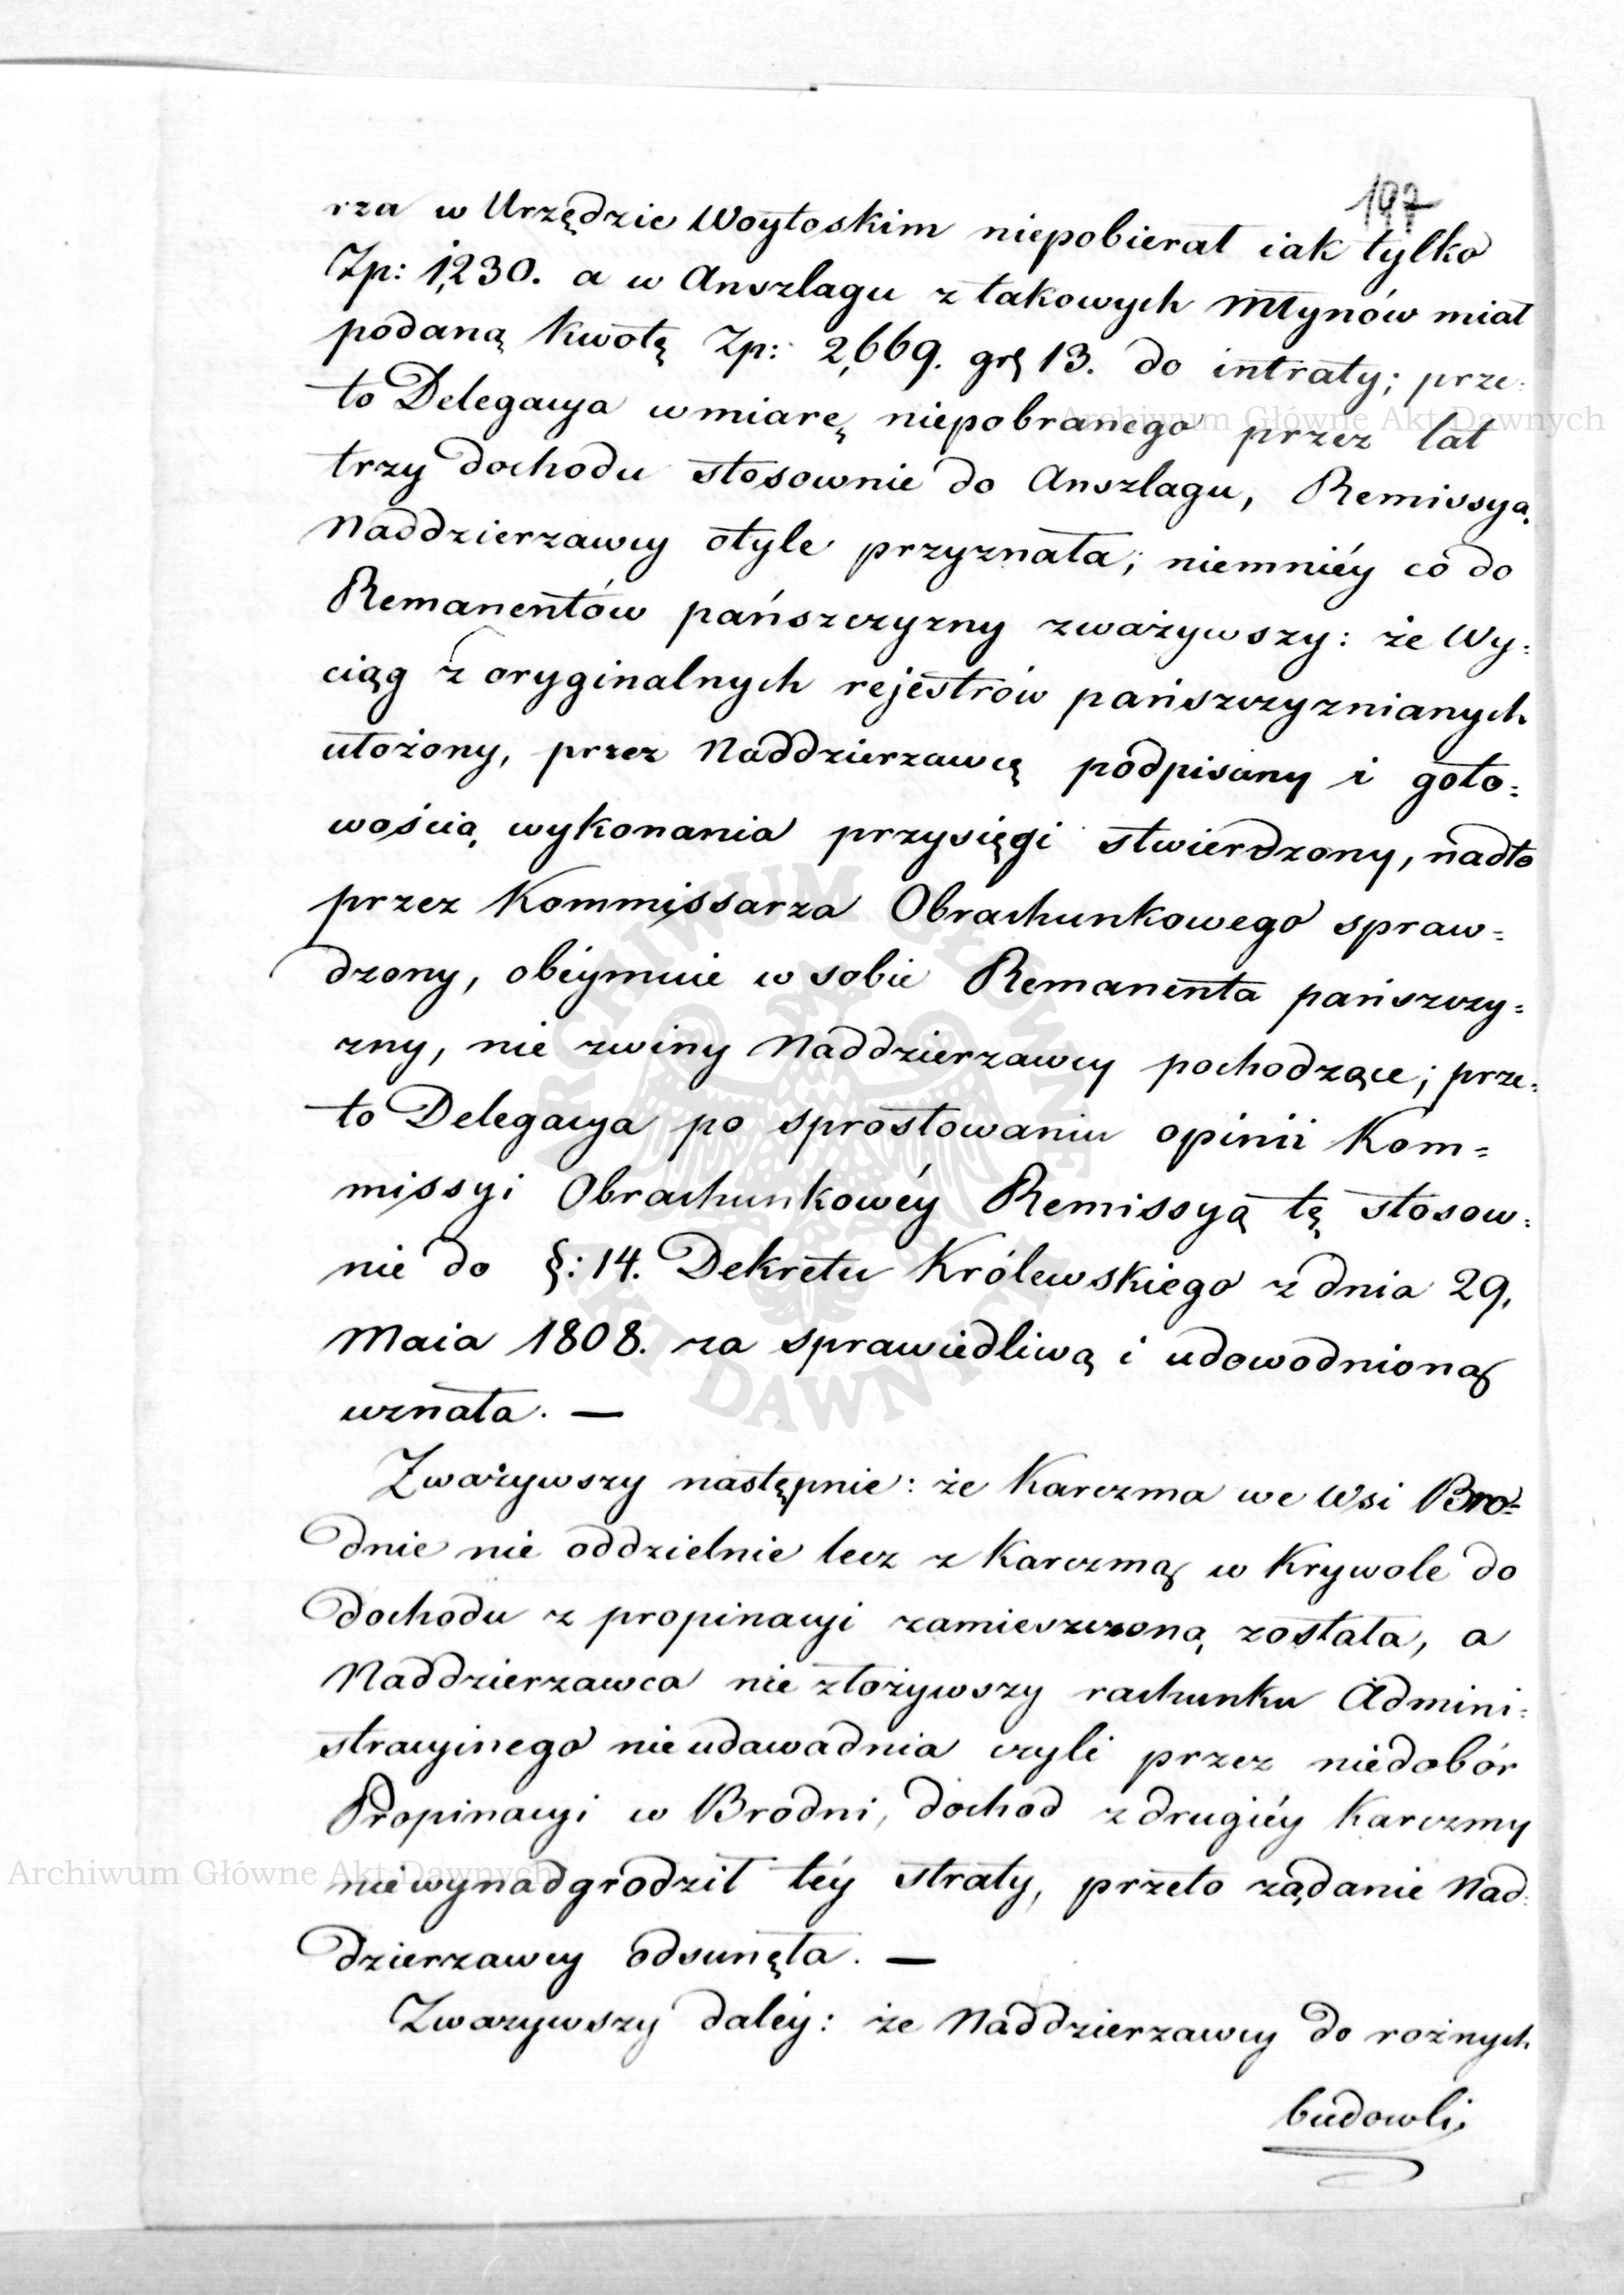 197
rza w Urzędzie Woytoskim niepobierał iak tylko
Zp: 1,230. a w Anszlagu z takowych Młynów miał
podaną kwotę Zp: 2,669. gr 13. do intraty; prze-
to Delegacya w miarę niepobranego przez lat
trzy dochodu stosownie do Anszlagu, Remissyą
Naddzierzawcy otyle przyznała; niemniéy co do
Remanentów pańszczyzny zważywszy: że Wy=
ciąg z oryginalnych rejestrów pańszczyznianych
ułożony, przez Naddzierzawcę podpisany i goto=
wością wykonania przysięgi stwierdzony, nadto
przez Kommissarza Obrachunkowego spraw=
dzony, obeymuie w sobie Remanenta pańszczy=
zny, nie zwiny Naddzierzawcy pochodzące; prze=
to Delegacya po sprostowaniu opinii Kom=
missyi Obrachunkowéy Remissyą tę stosow=
nie do §: 14. Dekretu Królewskiego z dnia 29.
Maia 1808. za sprawiedliwą i udowodnioną
uznała. —
Zważywszy następnie: że Karczma we Wsi Bro=
dnie nie oddzielnie lecz z Karczmą w Krywole do
dochodu z propinacyi zamieszczoną została, a
Naddzierzawca nie złożywszy rachunku Admini=
stracyinego nieudawadnia czyli przez niedobór
Propinacyi w Brodni, dochod z drugiéy Karczmy
niewynadgrodził téy straty, przeto ządanie Nad=
dzierzawcy odsunęła. —
Zwazywszy daléy: że Naddzierzawcy do rożnych
budowli
Archiwum Główne Akt Dawnych
Archiwum Główne Akt Dawnych
ARCHIWUM GŁÓWNE AKT DAWNYCH